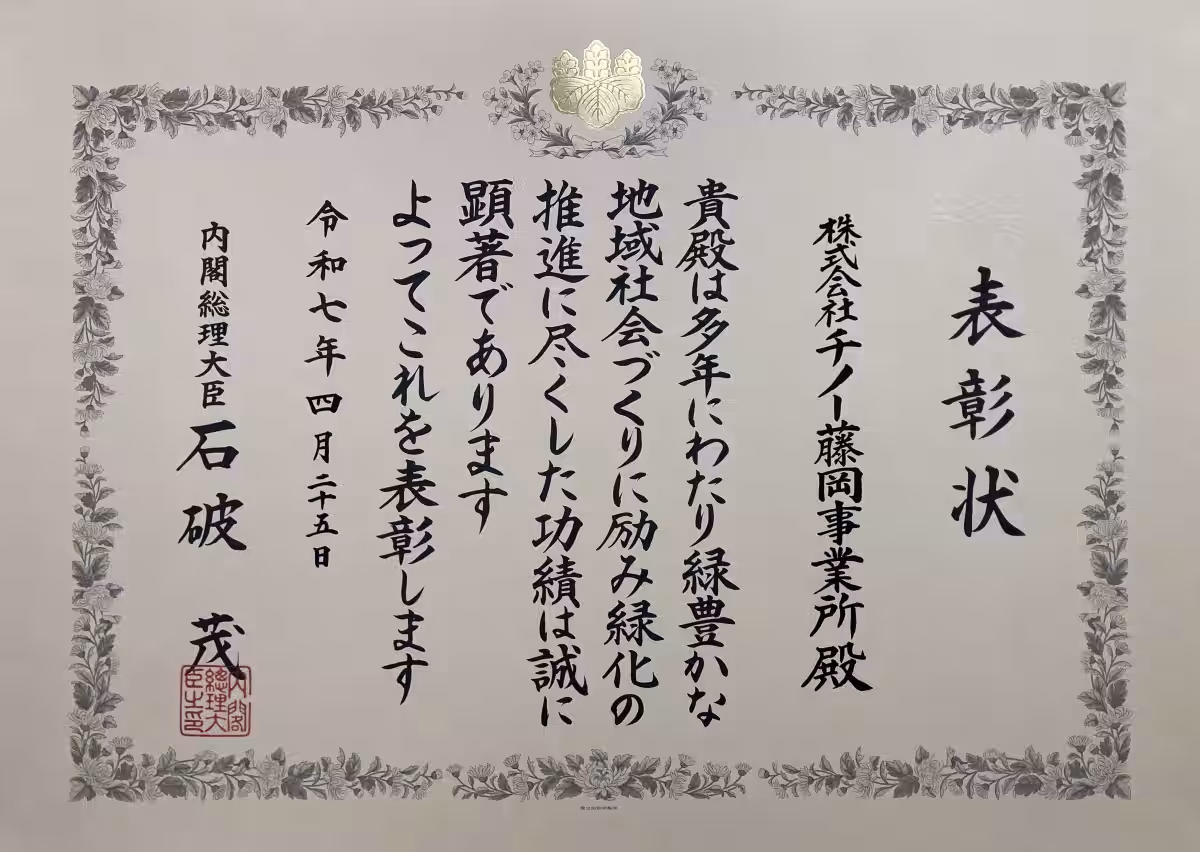 表彰状
株式会社チノー藤岡事業所殿
貴殿は多年にわたり緑豊かな
地域社会づくりに励み緑化の
推進に尽くした功績は誠に
顕著であります
よってこれを表彰します
令和七年四月二十五日
内閣総理大臣 石破 茂
内閣
總理大
臣之印